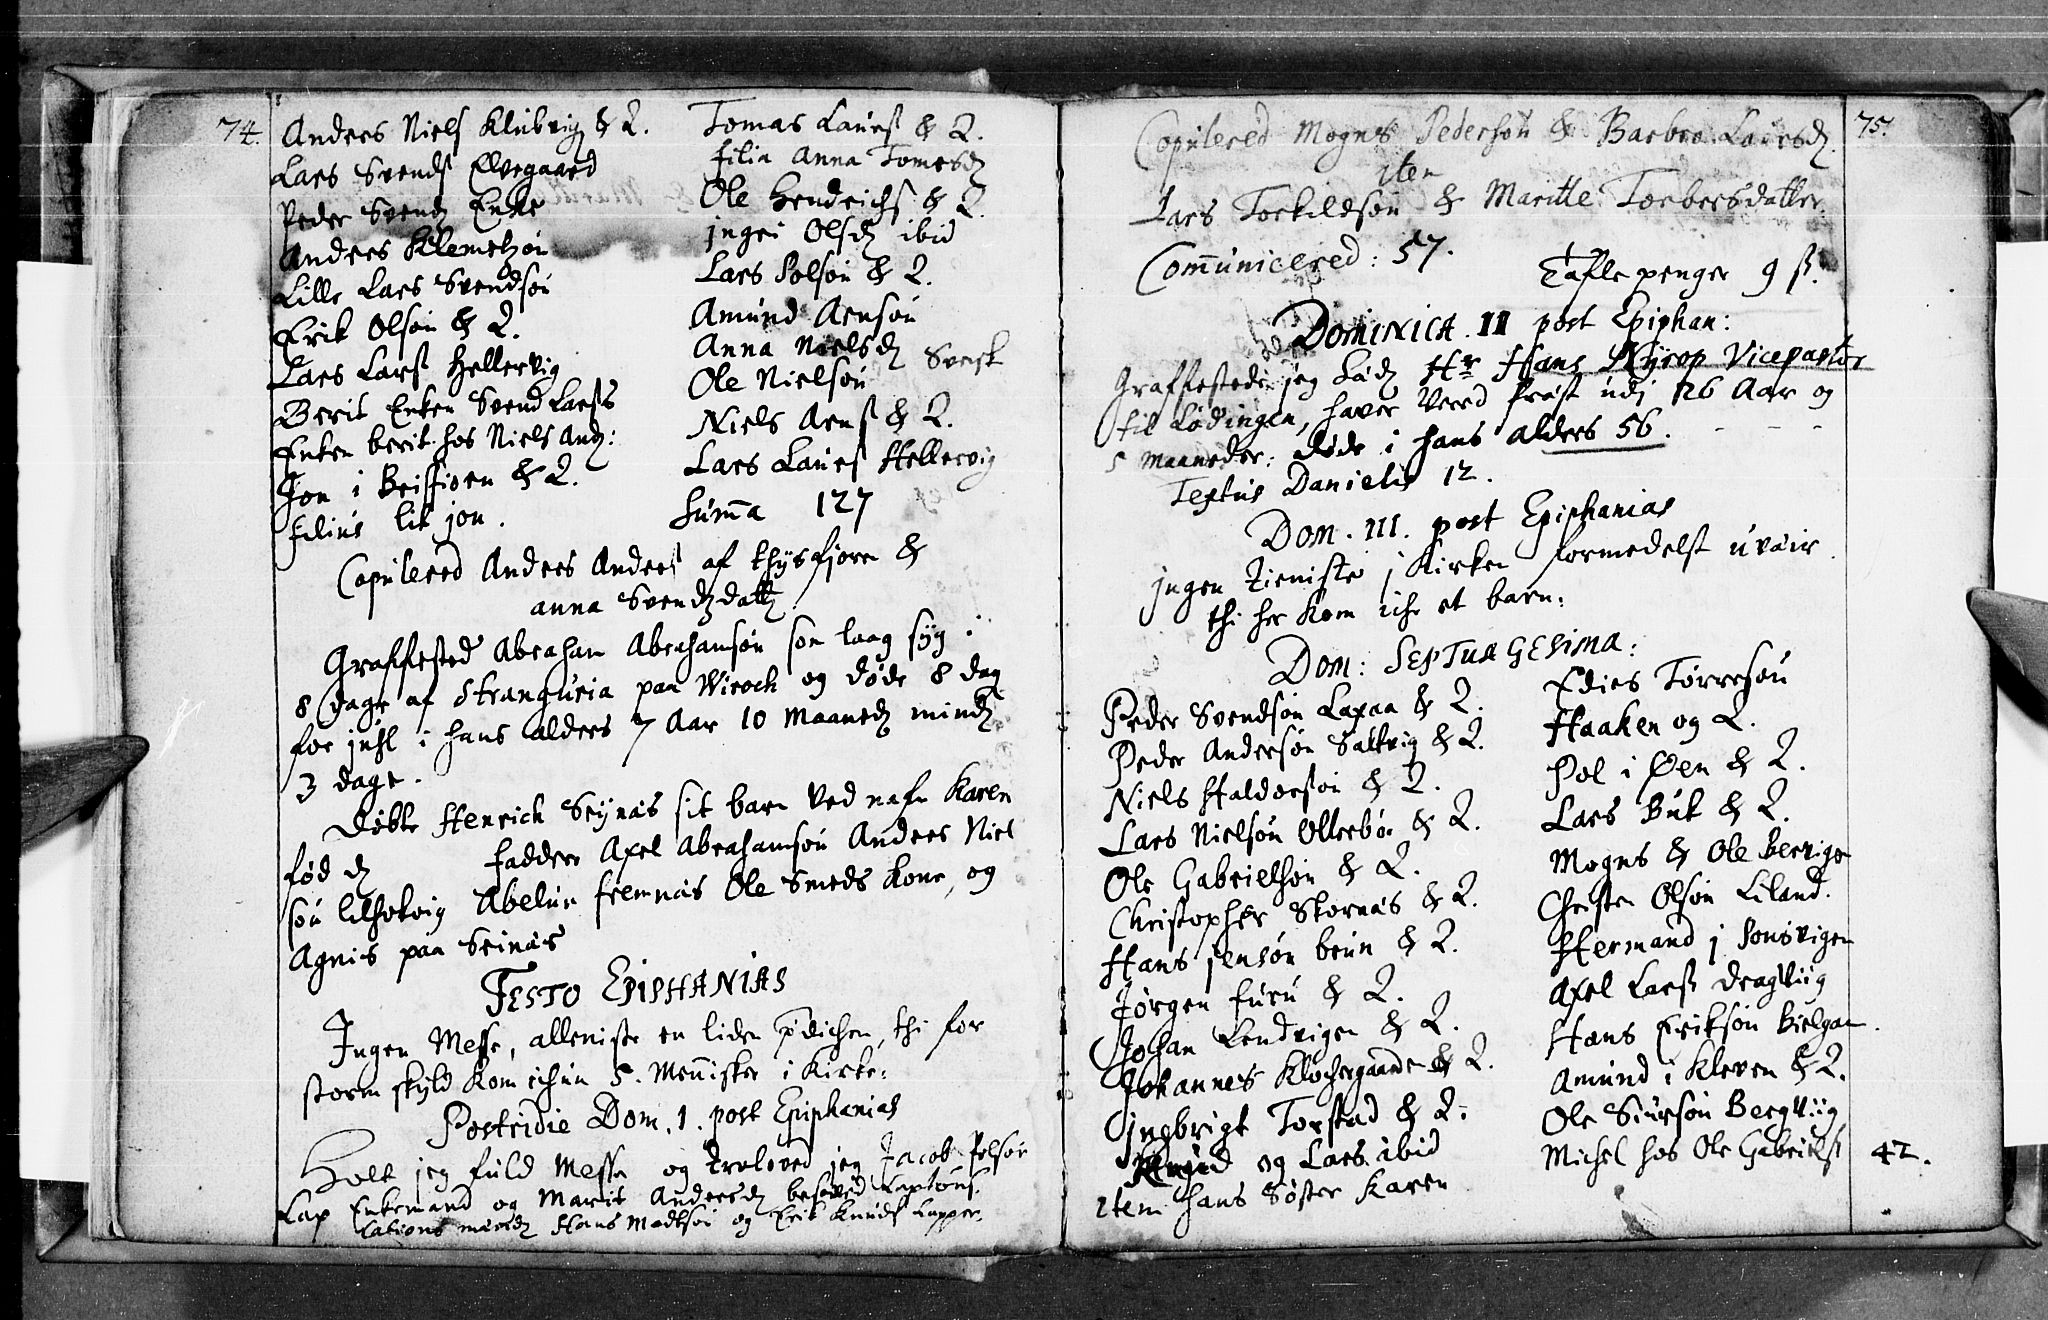 74.
Anders Niels Klubvig & Q.
Lars Svends Elvegaard
Peder Svendz Enke
Anders Klemetzøn
Lille Lars Svendsøn
Erik Olsøn & Q.
Lars Larss Hellervig
Berit Enken Svend Larses
Enken berit hos Niels And:
Jon i Beisfioren & Q.
filius lit jon.
Tomas Laurss & Q.
filia Anna Tomesd
Ole Hendrichs & Q.
jngri Olsd ibid
Lars Polsøn & Q.
Amund Arnsøn
Anna Nielsd Svensk
Ole Nielsøn
Niels Arnss & Q.
Lars Laurss Hellervig
Summa 127
Copulered Anders Anders af thysfjoren &
anna Svendzdatt
Graffested Abraham Abrahamsøn som laag syg
8 dage af stranguria paa Wiroch og døde 8 dag
for juhl i hans alders 7 Aar 10 Maaned mind
3 dage.
Døbte Henrich Seynæs sit barn ved nafn Karen
fød d fadder Axel Abrahamsøn Anders Niel
søn lilhokvig Abelun fremnæs Ole Smeds Kone, og
Agnis paa Seinæs
FESTO EPIPHANIAS
Jngen Messe, alleniste en liden prædichen, thi for
storm skyld kom ichun 5. Mennisker i Kirke:
Postridie Dom. 1. post Epiphanias
Holt jeg fuld Messe og troloved jeg Jacob Polsøn
Lap Enkemand og Marit Andersd
Hans Madtsøn og Erik Knuds Lapper.
75.
Copulered Mogns Pedersøn & Barbro Laursd.
item
Lars Torkildsøn & Maritte Torbersdatter.
Communicered: 57. Tafle penger 9 ß.
DOMINICA II post Epiphan:
Graffestede jeg Sal Hr Hans Nyrop Vicepastor
til Lødingen, haver været Præst udj 26 Aar og
5 Maaneder: døde i hans alders 56.
Textus Danielis 12.
DOM. III. post Epiphanias
jngen tieniste j Kirken formedelst uvæir
thi her kom iche et barn.
DOM: SEPTUAGESIMA:
Peder Svendsøn Lapaa & Q.
Peder Andersøn Saltvig & Q.
Niels Haldorsøn & Q.
Lars Nielsøn Ollerbø & Q.
Ole Gabrielsøn & Q.
Christopher Skornæs & Q.
Hans jensøn brun & Q.
Jørgen furu & Q.
Johan Lendvigen & Q.
Johannes Klochergaarden & Q.
jngbrigt Torstad & Q.
og Lars ibid
item hans Søster Karen
Edies Torresøn
Haaken og Q.
Pol i Øen & Q.
Lars Buk & Q.
Mogns & Ole Bervigen
Christen Olsøn Liland.
Hermand j Sonsvigen
Axel Larss Dragviig
Hans Eriksøn Bielgam.
Amund i Kleven & Q.
Ole Siursøn Bergviig
Michel hos Ole Gabriels 42.